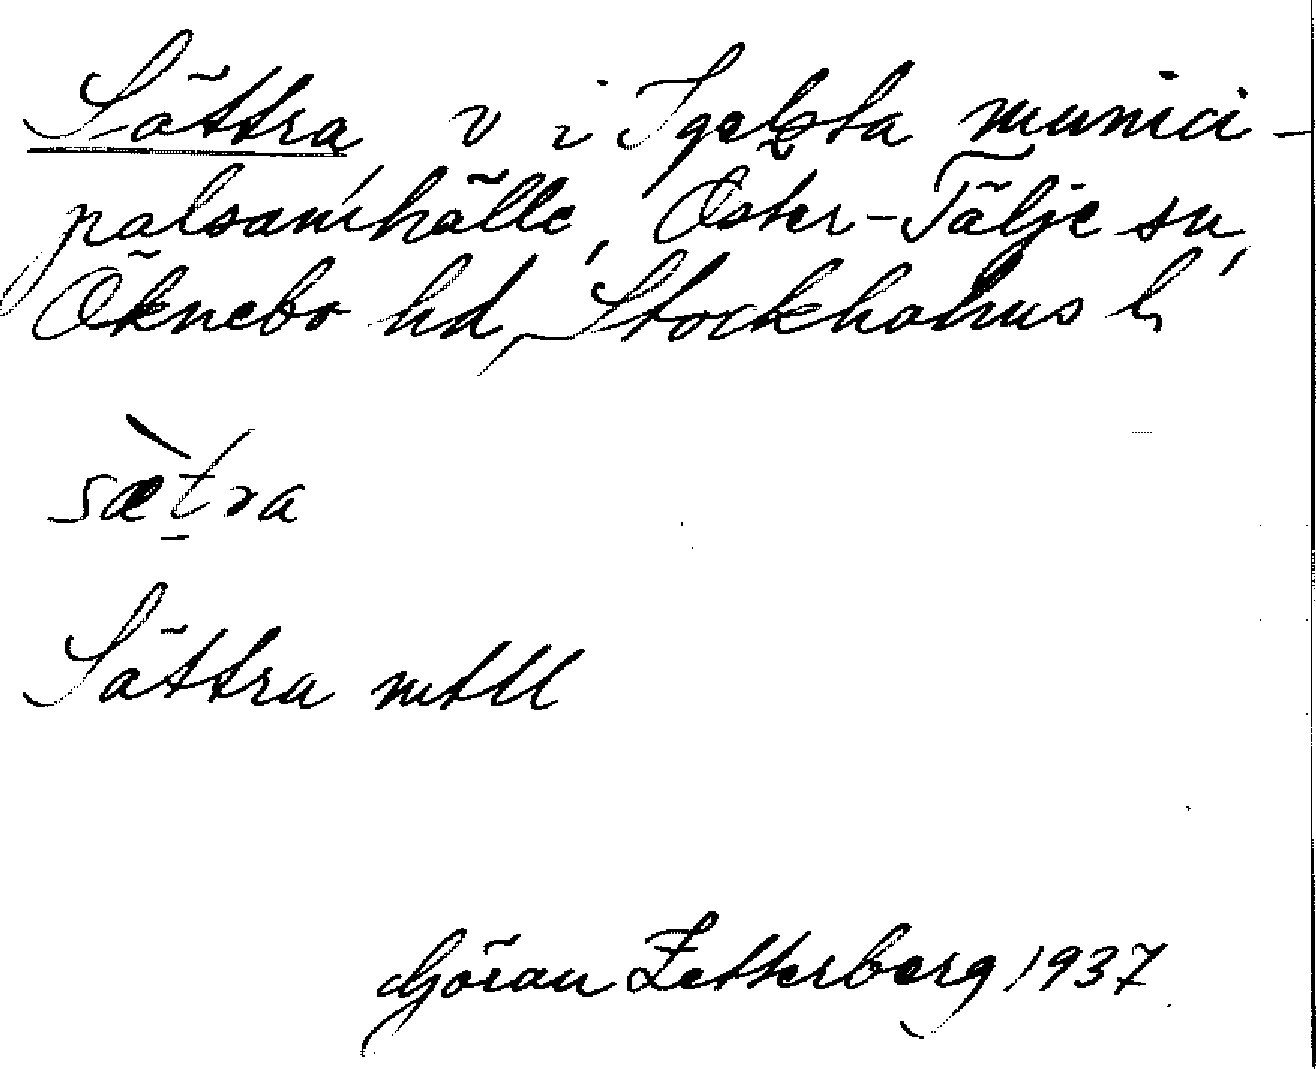 Sättra v i Igelsta munici-
palsamhälle, Öster-Tälje sn,
Öknebo hd, Stockholms l.
sætra
Sättra mtll
Göran Zetterberg 1937